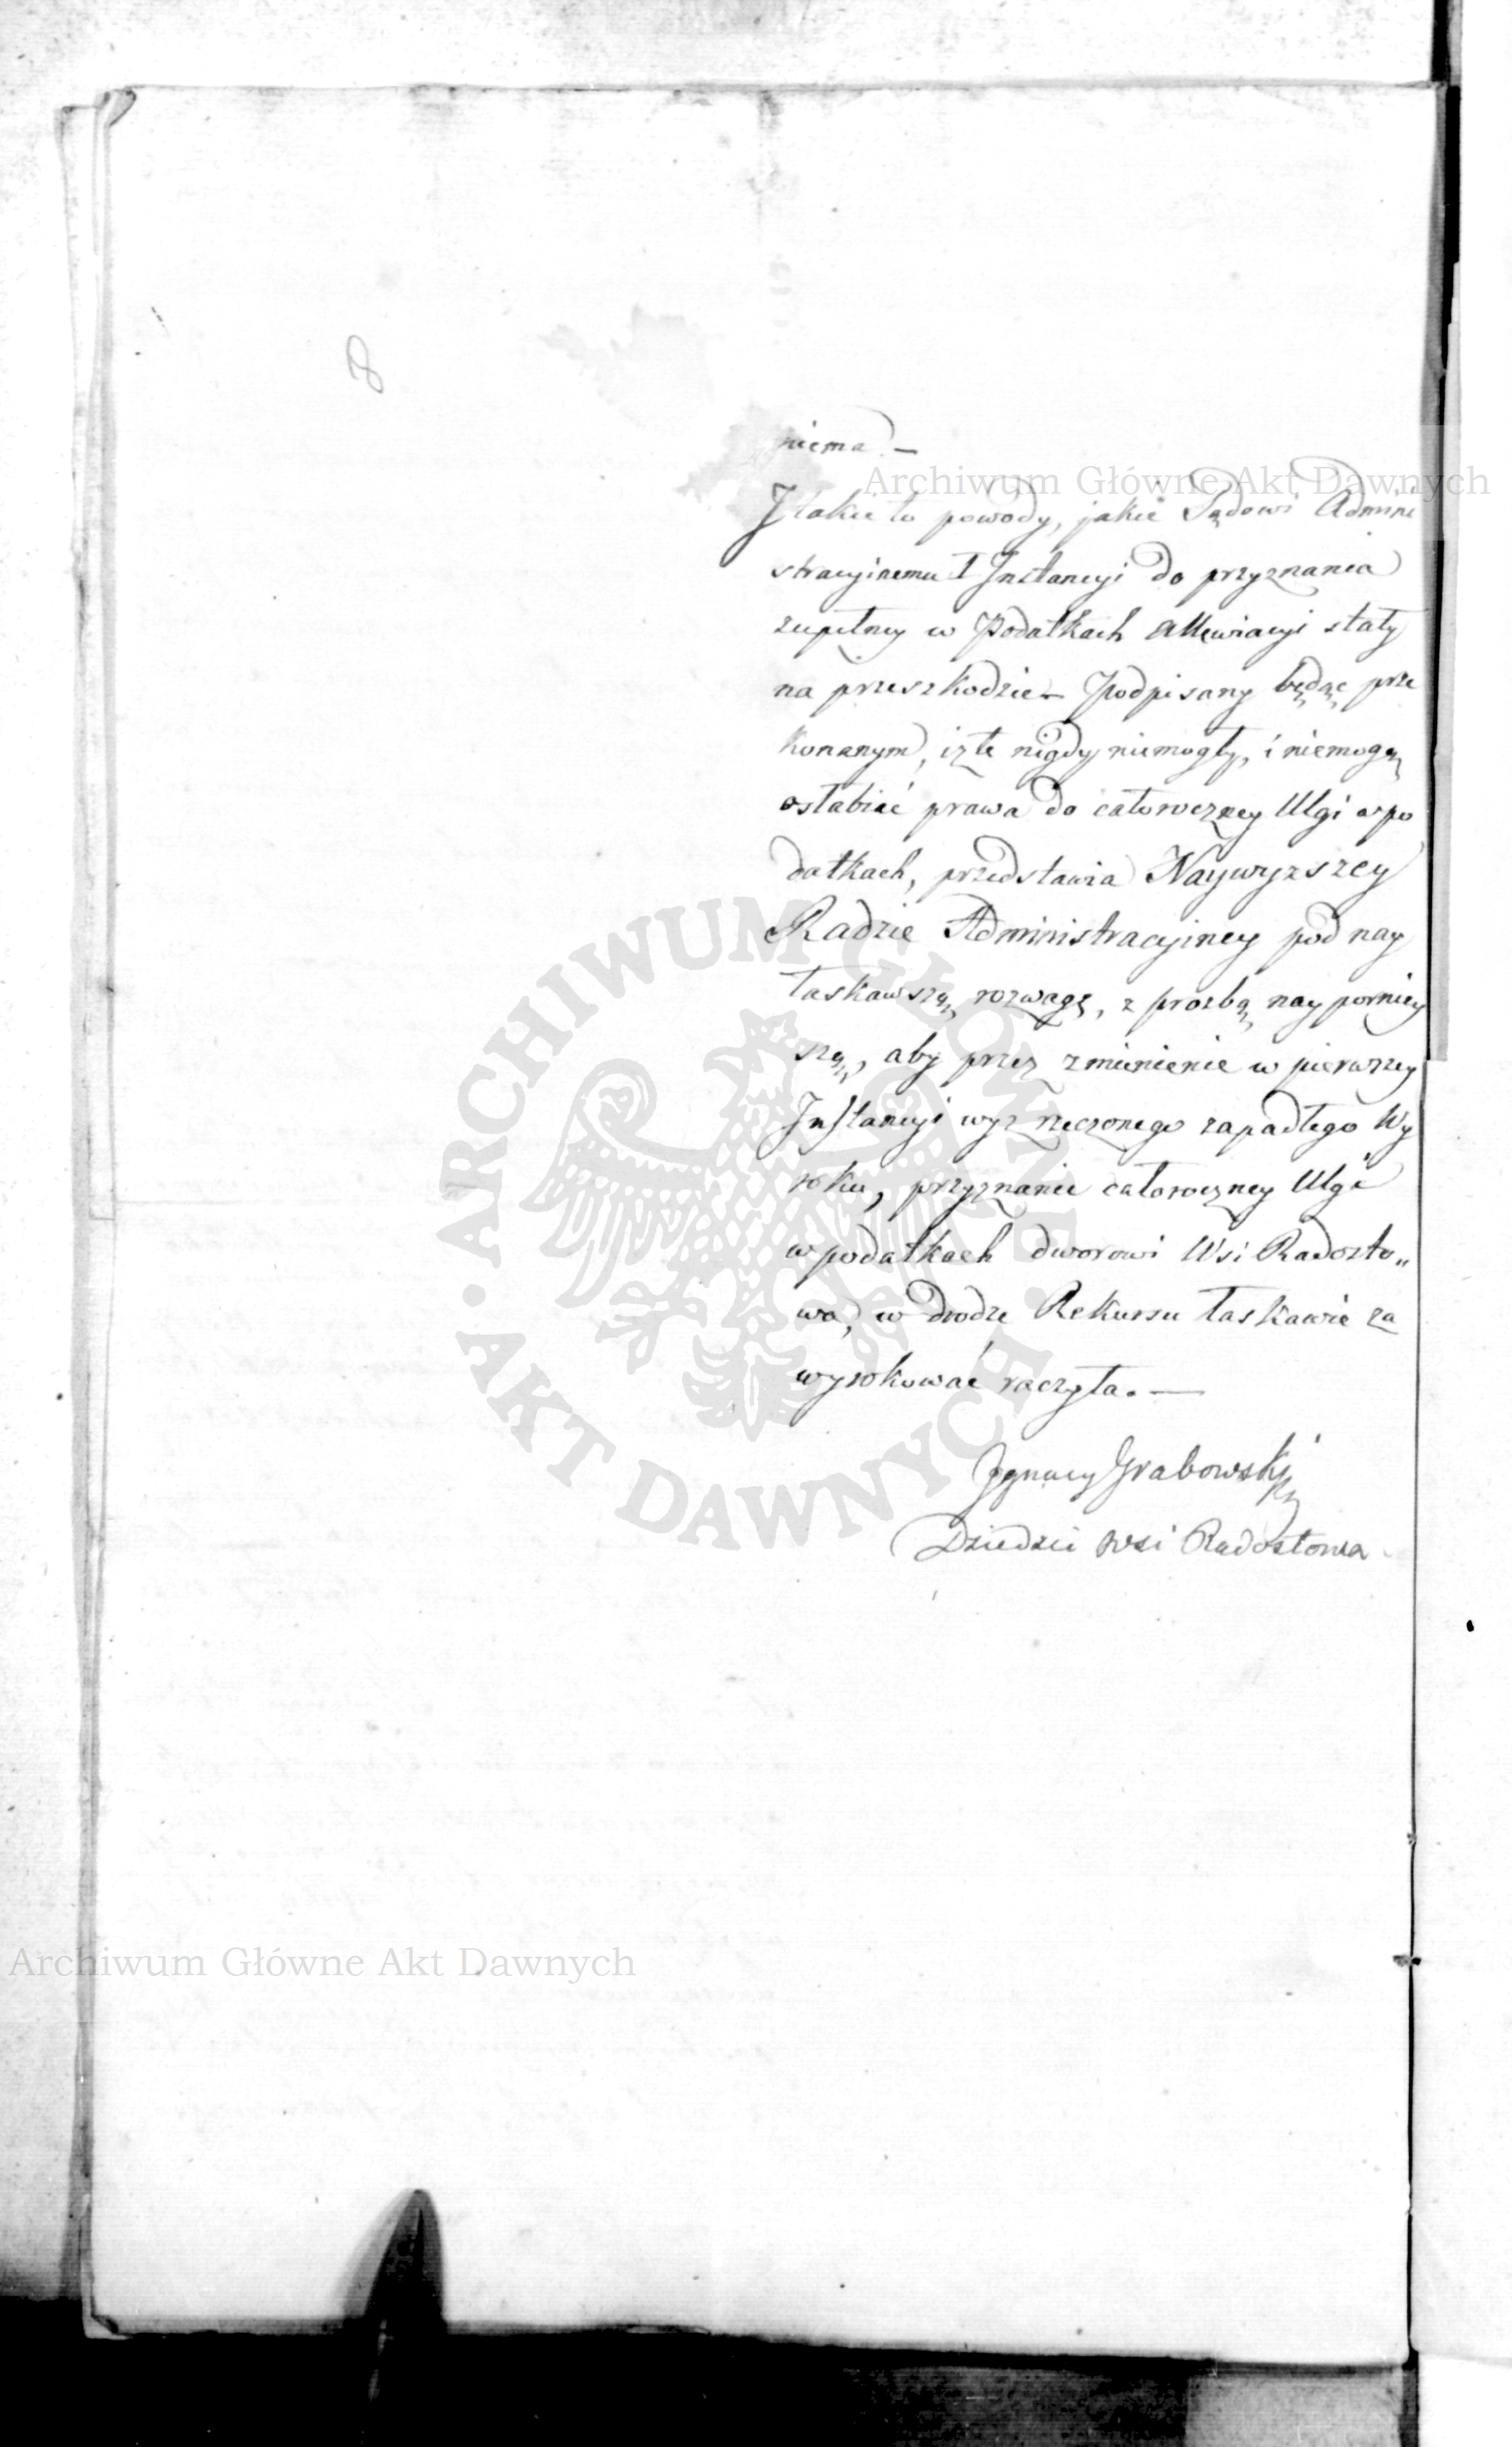 8
niema. —
Itakie to powody, jakie Sądowi Admini
stracyinemu I Instancyi do przyznania
zupełney w Podatkach Allewiacyi stały
na przeszkodzie — Podpisany będąc prze
konanym, iż te nigdy niemogły, i niemogą
osłabiać prawa do całoroczney Ulgi w po
datkach, przedstawia Naywyższey
Radzie Administracyiney pod nay
łaskawszą rozwagę, z prozbą nay porniey
szą, aby przez zmienienie w pierwszey
Instancyi wyrzeczonego zapadłego Wy
roku, przyznanie całoroczney Ulgi
w podatkach dworowi Wsi Radosto„
wa, w drodze Rekursu łaskawie za
wyrokować raczyła. —
Ignacy Grabowski
Dziedzic wsi Radostowa
Archiwum Główne Akt Dawnych
ARCHIWUM GŁÓWNE • AKT DAWNYCH •
Archiwum Główne Akt Dawnych